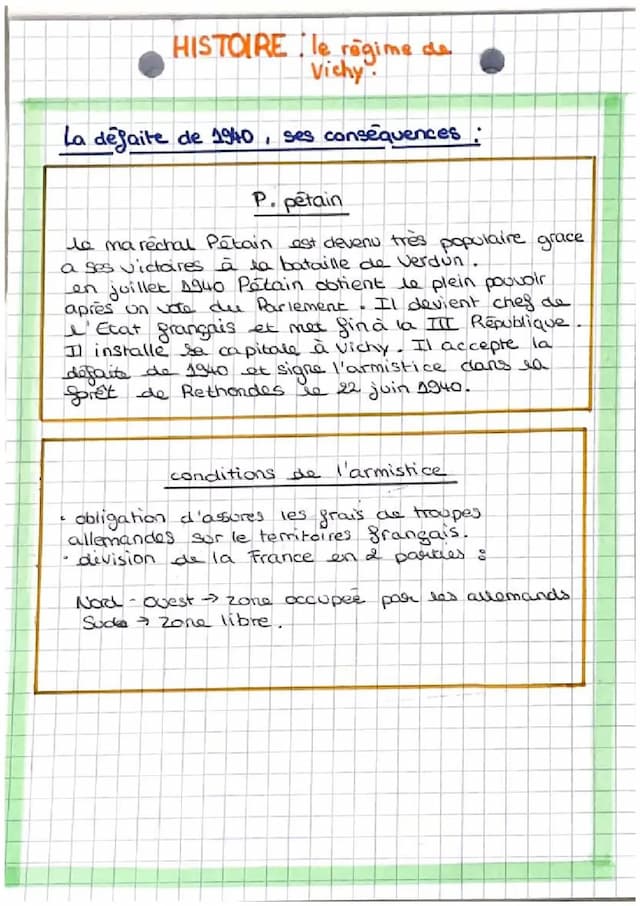 HISTOIRE : le régime de
Vichy.
La défaite de 1940, ses conséquences :
P. pétain
le maréchal Pétain est devenu très populaire grace
a ses victoires à la bataille de Verdun.
en juillet 1940 Pétain obtient le plein pouvoir
après un vote du Parlement. Il devient chef de
l'Etat français et met fin à la III République.
Il installe sa capitale à Vichy. Il accepte la
défaite de 1940 et signe l'armistice dans la
forêt de Rethondes le 22 juin 1940.
conditions de l'armistice
• obligation d'assures les frais de troupes
allemandes sur le territoires français.
• division de la France en 2 parties :
Nord - Ouest → zone occupée par les allemands
Sude → zone libre.